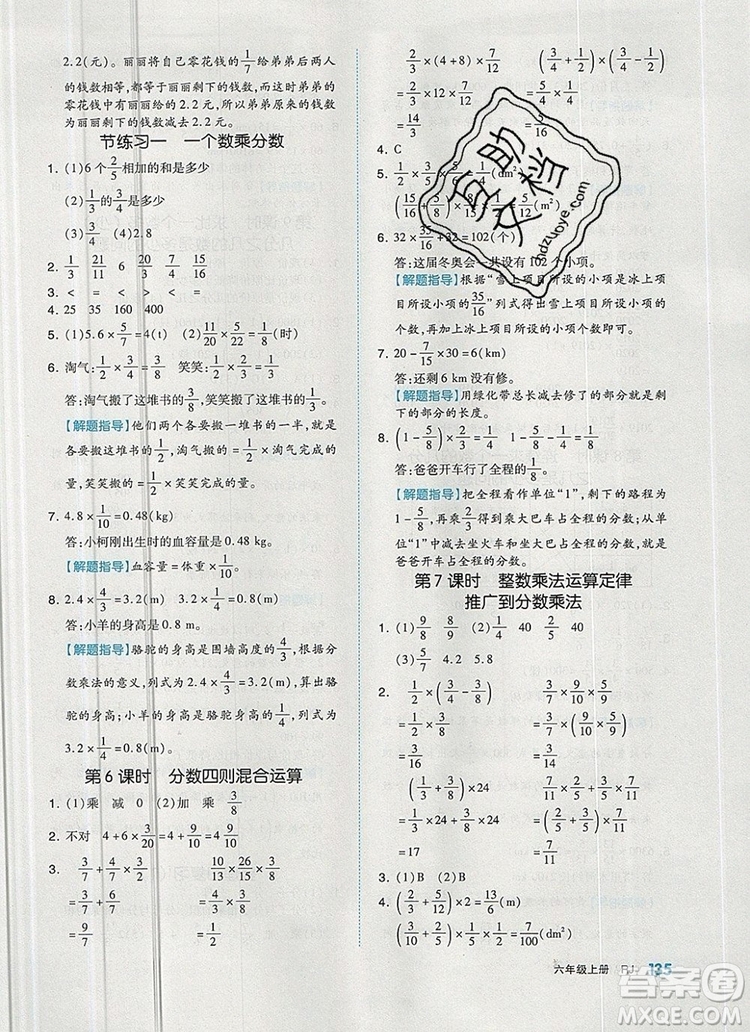 2.2(元)。丽丽将自己零花钱的1/7给弟弟后两人
的钱数相等,都与丽丽剩下的钱数相等,而这时弟弟的
零花钱中包含丽丽给的2.2元,所以弟弟原来的钱数
为丽丽剩下的钱数减去2.2元。
节练习一 一个数乘分数
1. (1)6个2/5相加的和是多少
(2)1/3的3/4是多少
(3)3/4 (4)2.8
2. 2/3 7/11 6/31 21/20 7/15 15/16
3. < = < < = <
4. 25 35 160 400
5. (1)5.6×5/7=4(t) (2)11/20×5/22=1/8(时)
6. 淘气:1/2×3/4=3/8 笑笑:1/2×2/3=1/3
答:淘气搬了这堆书的3/8,笑笑搬了这堆书的1/3。
【解题指导】他们两人各要搬一堆书的一半,就是
各要搬这堆书的1/2,淘气搬的=1/2×淘气已完成的
量,笑笑搬的=1/2×笑笑已完成的量。
7. 4.8×1/10=0.48(kg)
答:小柯刚出生时的血容量是0.48 kg。
【解题指导】血容量=体重×1/10。
8. 2.4×4/3=3.2(m) 3.2×1/4=0.8(m)
答:小羊的身高是0.8 m。
【解题指导】骆驼的身高是围墙高度的4/3,根据分
数乘法的意义,列式为2.4×4/3=3.2(m),算出骆
驼的身高;小羊的身高是骆驼身高的1/4,列式为
3.2×1/4=0.8(m)。
第6课时 分数四则混合运算
1. (1)乘 减 0 (2)加 乘 3/8
2. 不对 4+6×3/20=4+9/10=4 9/10
3. 3/7+4/7×3/2 10/13×26/15×3/8
=3/7+6/7 =4/3×3/8
=9/7 =1/2
2/3×(4+8)×7/12 (3/4+1/2)×1/4
=2/3×12×7/12 =5/4×1/4
=14/3 =5/16
4. C
5. 15/16×1/2=15/32(dm²)
6. 32×35/16+32=102(个)
答:这届冬奥会一共设有102个小项。
【解题指导】根据“雪上项目所设的小项是冰上项
目所设小项的35/16”列式得出雪上项目所设的小项
个数,再加上冰上项目所设的小项个数即可。
7. 20-7/15×30=6(km)
答:还剩6 km没有修。
【解题指导】用绿化带总长减去修了的部分就是剩
下的部分的长度。
8. (1-5/8)×2/3=1/4 1-5/8-1/4=1/8
答:爸爸开车行了全程的1/8。
【解题指导】把全程看作单位“1”,剩下的路程为
1-5/8,再乘2/3得到乘大巴车占全程的分数;从单
位“1”中减去坐火车和坐大巴占全程的分数就是
爸爸开车行的占全程的分数。
第7课时 整数乘法运算定律
推广到分数乘法
1. (1)9/8 8/9 (2)1/40 2/5 40
(3)5/7 4.2 5.8
2. 1/2×(3/4-3/8) 7/11×2/5+7/11×3/5
=1/2×3/8 =7/11×(2/5+3/5)
=3/16 =7/11
(2/3+3/4)×12 3/10×5/2×2/5
=2/3×12+3/4×12 =3/10×(5/2×2/5)
=17 =3/10
3. (1)B (2)B
4. (2/3+5/12)×2=13/6(m)
(2/5×1/4)×1/10×7/10=7/1000(dm³)
六年级上册 BJ 135
互助文档
hdzuoye.com
答案圈
MXQE.COM